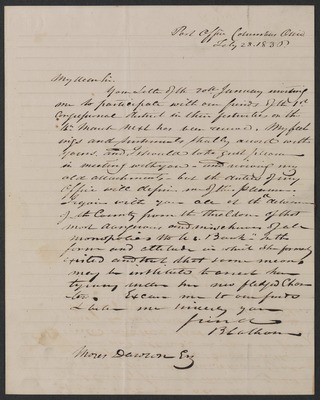 Post Office Columbus Ohio
Feby 23. 1836
My dear Sir.
Your letter of the 20th January inviting
me to participate with our friends of the 1st
Congressional District in their festivities on the
4th March next has been received. My feel
ings and sentiments fully accord with
yours, and I should take great pleasure
in meeting with you and my
old but the duties of my
Office will deprive me of the pleasure. I
rejoice with you all at the deliverance
of the Country from the of that
most dangerous and mischievous of all
monopolies the U.S. Bank in the
form and attitude in which she formerly
existed and trust that some means
may be instituted to arrest her
tyranny under her new fledged Char
ter. Excuse me to our friends
& believe me sincerely your
friend
B Latham
Moses Dawson Esq